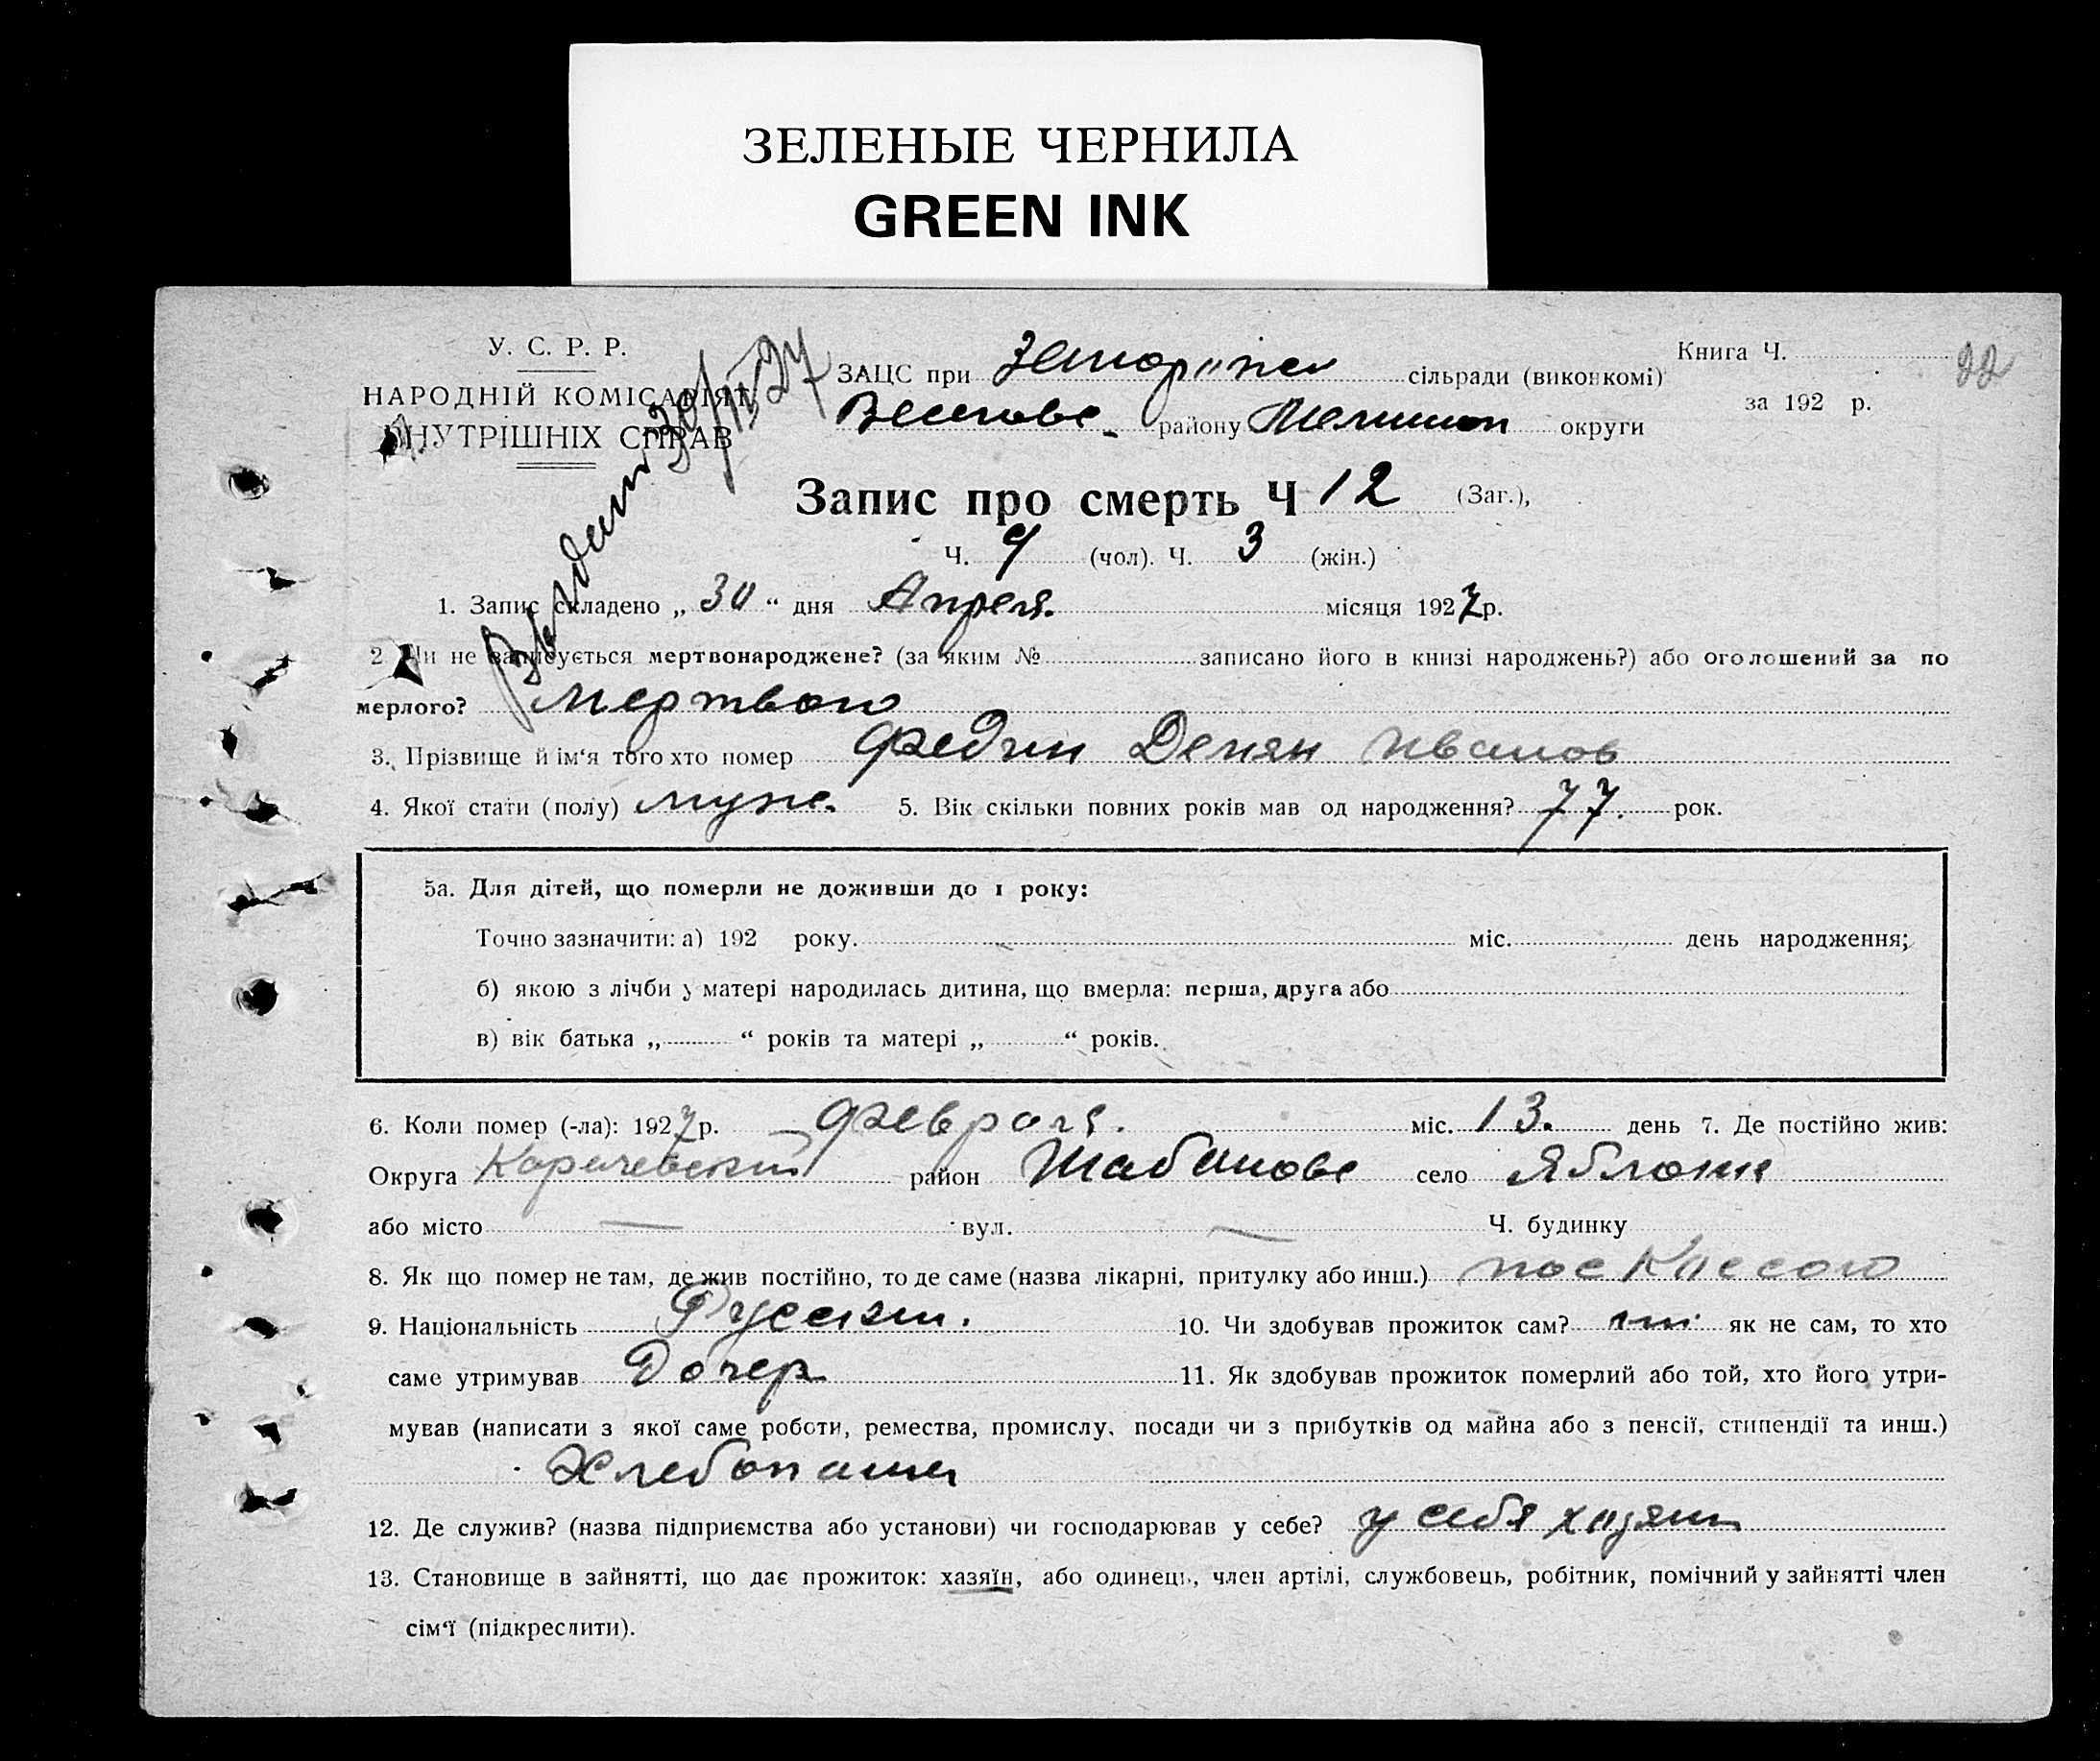 ЗЕЛЕНЫЕ ЧЕРНИЛА
GREEN INK
У. С. Р. Р.
НАРОДНІЙ КОМІСАРІЯТ
ВНУТРІШНІХ СПРАВ
30/IV 27
ЗАЦС при сільради (виконкомі)
Веселовс району Мелитоп округи
Книга Ч. 22
за 192 р.
Запис про смерть Ч 12 (Заг.),
Ч. 9 (чол). Ч. 3 (жін.)
1. Запис складено „ 30 “ дня Апреля. місяця 1927 р.
2 Чи не записується мертвонароджене? (за яким № записано його в книзі народжень?) або оголошений за по
мерлого? мертвого
3. Прізвище й ім‘я того хто помер Федин Демян Иванов
4. Якої стати (полу) муж. 5. Вік скільки повних років мав од народження? 77. рок.
5а. Для дітей, що померли не доживши до 1 року:
Точно зазначити: а) 192 року. міс. день народження;
б) якою з лічби у матері народилась дитина, що вмерла: перша, друга або
в) вік батька „ “ років та матері „ “ років.
6. Коли помер (-ла): 1927 р. Февраля. міс. 13. день 7. Де постійно жив:
Округа Карачевский район Шабановс село
або місто — вул. — Ч. будинку
8. Як що помер не там, де жив постійно, то де саме (назва лікарні, притулку або инш.)
9. Національність Русский. 10. Чи здобував прожиток сам? як не сам, то хто
саме утримував Дочер 11. Як здобував прожиток померлий або той, хто його утри-
мував (написати з якої саме роботи, ремества, промислу, посади чи з прибутків од майна або з пенсії, стипендії та инш.)
Хлебопашец
12. Де служив? (назва підприємства або установи) чи господарював у себе? у себя хазяин
13. Становище в зайнятті, що дає прожиток: хазяїн, або одинець, член артілі, службовець, робітник, помічний у зайнятті член
сім‘ї (підкреслити).